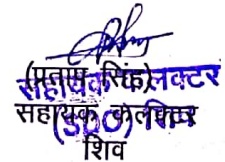 (प्रताप सिंह)
सहायक कलक्टर
सहायक कलक्टर
(SDO) शिव
शिव